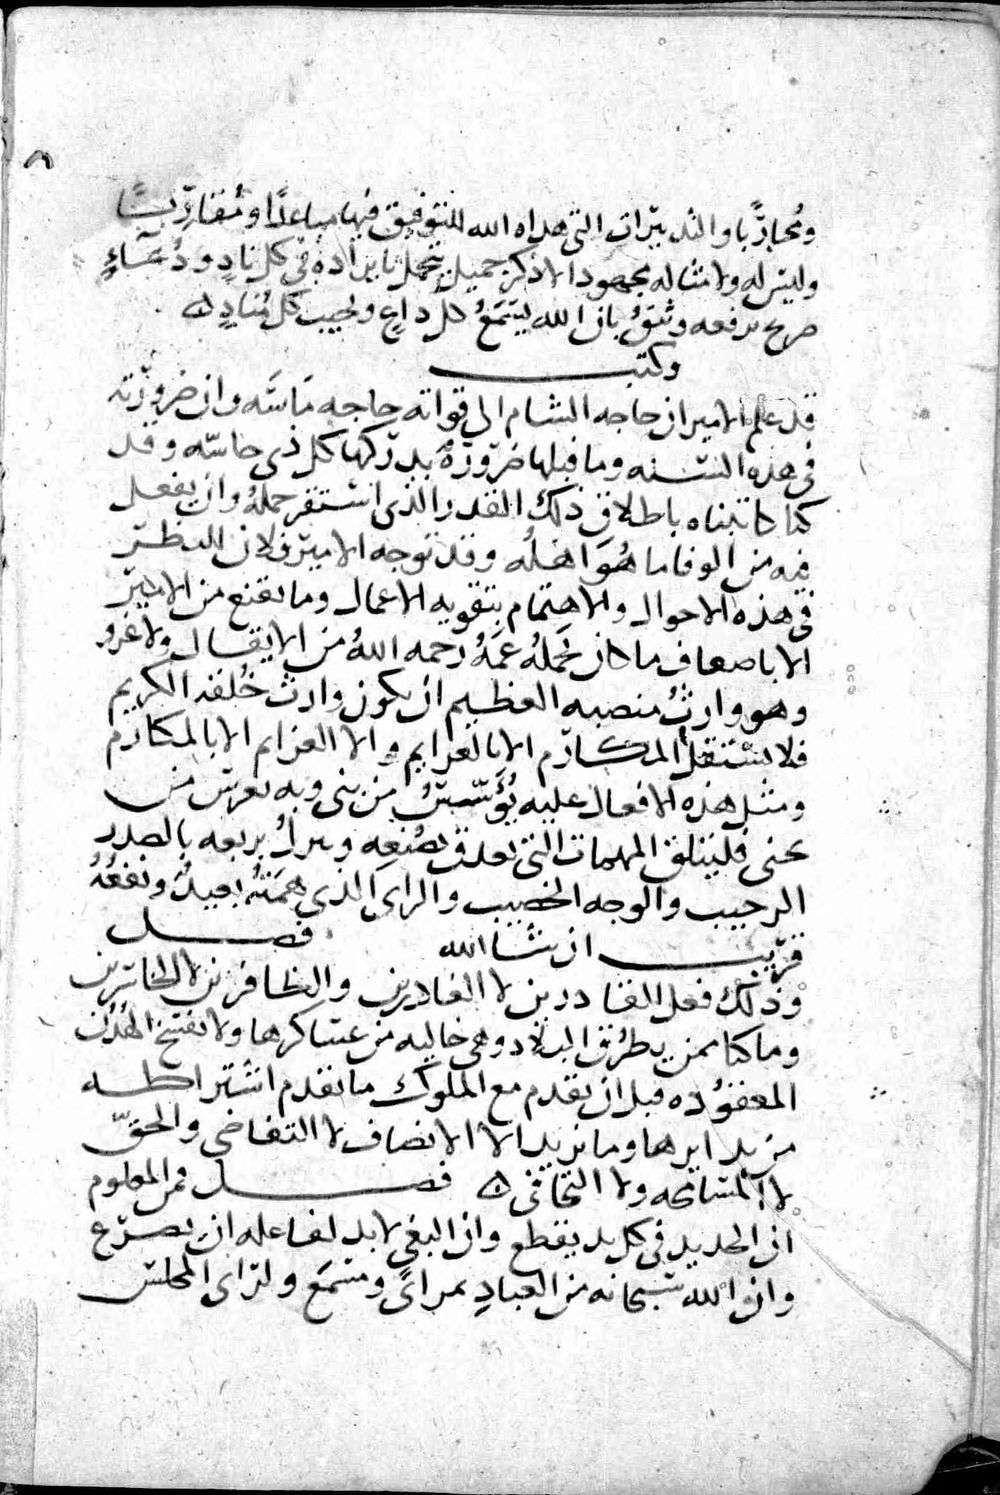 ٨
ومُحاربًا والتدبيرات التي هداه الله للتوفيق فيها مباعدًا ومُقاربًا
وليس له ولامثاله مجهود الا ذكر جميل يتجمل بايراده في كل نادٍ ودُعاءٍ
صالح يرفعه ويثقُ بان الله يسمَعُ كل داعٍ ويجيب كل مُنادٍ
وكتب
قد علم الامير ان حاجه الشام الى قواته حاجه مَاسَّه وان ضرورته
في هذه السنه وما قبلها ضرورهٌ يدركها كل ذي حاسّه وقد
كنا كاتبناه باطلاق ذلك القدر الذي استقر حملهُ وان يفعل
فيه من الوفا ما هُوَ اهلُه وقد توجه الامير فلان للنظر
في هذه الاحوال والاهتمام بتقويه الاعمال وما نقنع من الامير
الا باضعاف ما كان يحملهُ عمّهُ رحمه اللهُ من الايقال ولا غرو
وهو وارثُ منصبه العظيم ان يكون وارث خُلقه الكريم
فلا تستقل المكارم الا بالعزايم ولا العزايم الا بالمكارم
ومثل هذه الافعال عليه يُؤسّسُ من بنى وبه يغرس من
جنى فليتلق المهمات التي تعدق بصُنعِه وتنزلُ بربعه بالصدر
الرحيب والوجه الخصيب والراى الذي همّتُهُ بعيدهٌ ونفعُهُ
قريب ان شا الله فصل
وذلك فعل القادرين لا الغادرين والظافرين لا الخاترين
وما كنا ممن يطرُق البلاد وهي خاليه من عساكرها ولا نفتتح الهُدَن
المعقوده قبل ان نقدم مع الملوك ما تقدم اشتراطه
من بد ايرها وما نريد الا الانصاف لا التغاضي والحقّ
لا المسامحه ولا التحاقي فصل فمن المعلوم
ان الحديد في كل يد يقطع وان البغي لا بد لفاعله ان يصرع
وان الله سبحانه من العبادِ بمراىً ومسمَع ولراى المجلس